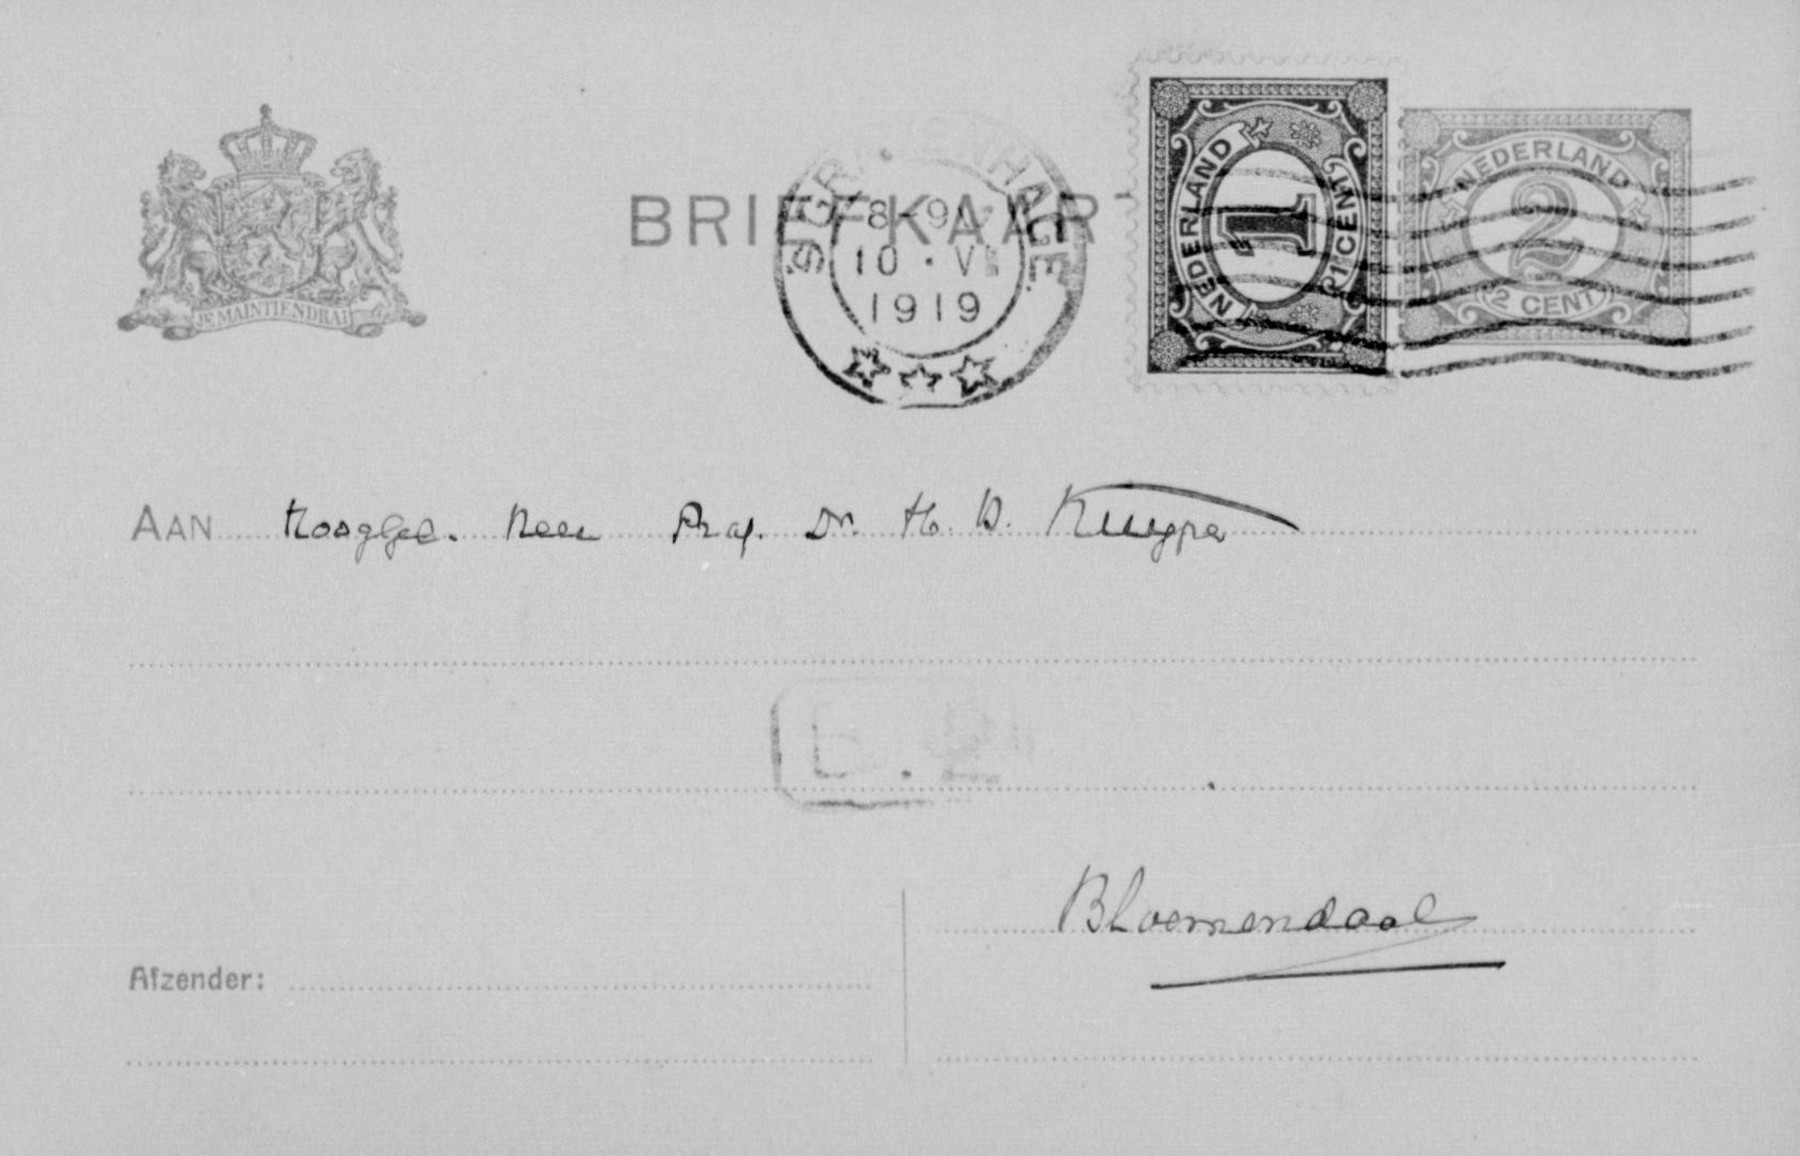 JE MAINTIENDRAI
BRIEFKAART
'S GRAVENHAGE
8-9
10 · VI
1919
NEDERLAND
1
1 CENT
NEDERLAND
2
2 CENT
AAN Hooggel. Heer Prof. Dr. H. H. Kuyper
Bloemendaal
Afzender: